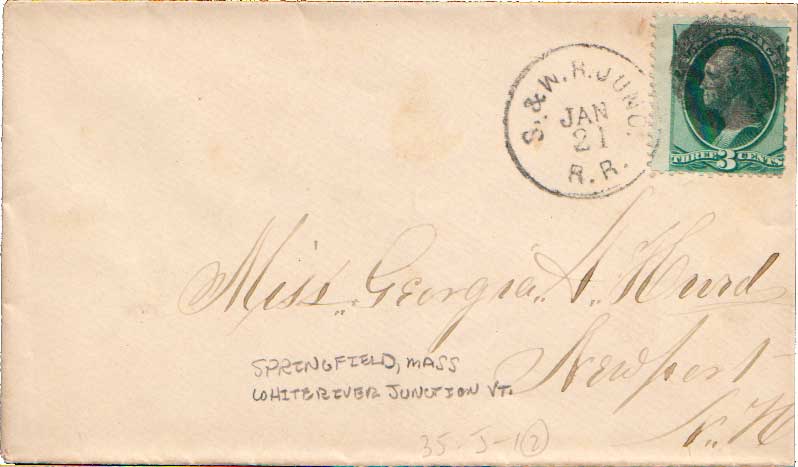 S. & W. R. JUNC.
JAN
21
R. R.
U.S. POSTAGE
THREE 3 CENTS
Miss. Georgia. A. Hurd
Newport
N. H
SPRINGFIELD, MASS
WHITERIVER JUNCTION VT.
35-J-1 (2)